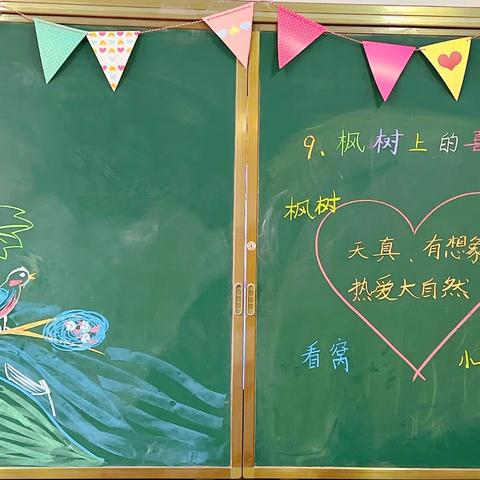 9、枫树上的喜
枫树
天真、有想象
热爱大自然
看窝
小